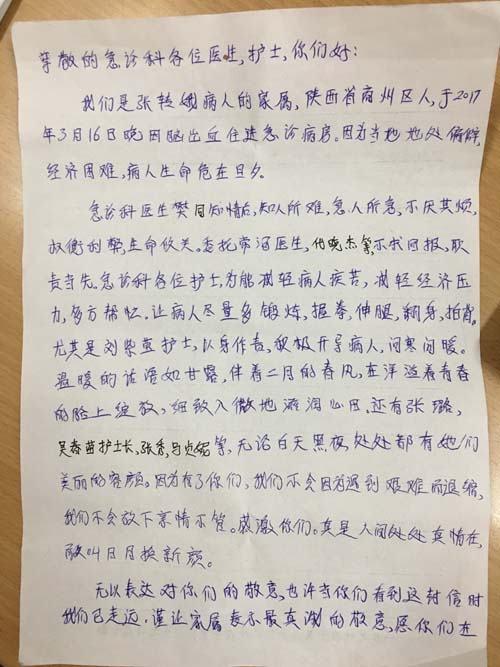 尊敬的急诊科各位医生,护士,你们好:
我们是张粒娥病人的家属,陕西省商州区人,于2017
年3月16日晚因脑出血住进急诊病房。因为当地地处偏僻,
经济困难,病人生命危在旦夕。
急诊科医生樊 同知情后,知人所难,急人所急,不厌其烦,
权衡利弊,生命攸关。医生,代晓杰等不求回报,职
责守先。急诊科各位护士,为能减轻病人疾苦,减轻经济压
力,多方帮忙。让病人尽量多锻炼,握拳,伸腿,翻身,拍背。
尤其是刘紫蓝护士,以身作责,积极开导病人,问寒问暖。
温暖的话语如甘露,伴着二月的春风,在洋溢着青春
的脸上绽放,细致入微地滋润心田,还有张璐,
吴春苗护士长,张秀,等,无论白天黑夜处处都有她们
美丽的容颜。因为有了你们,我们不会因为遇到艰难而退缩,
我们不会放下亲情不管。感激你们。真是人间处处真情在,
叫日月换新颜。
无以表达对你们的敬意,也许当你们看到这封信时
我们已走远,谨让家属表示最真诚的敬意,愿你们在